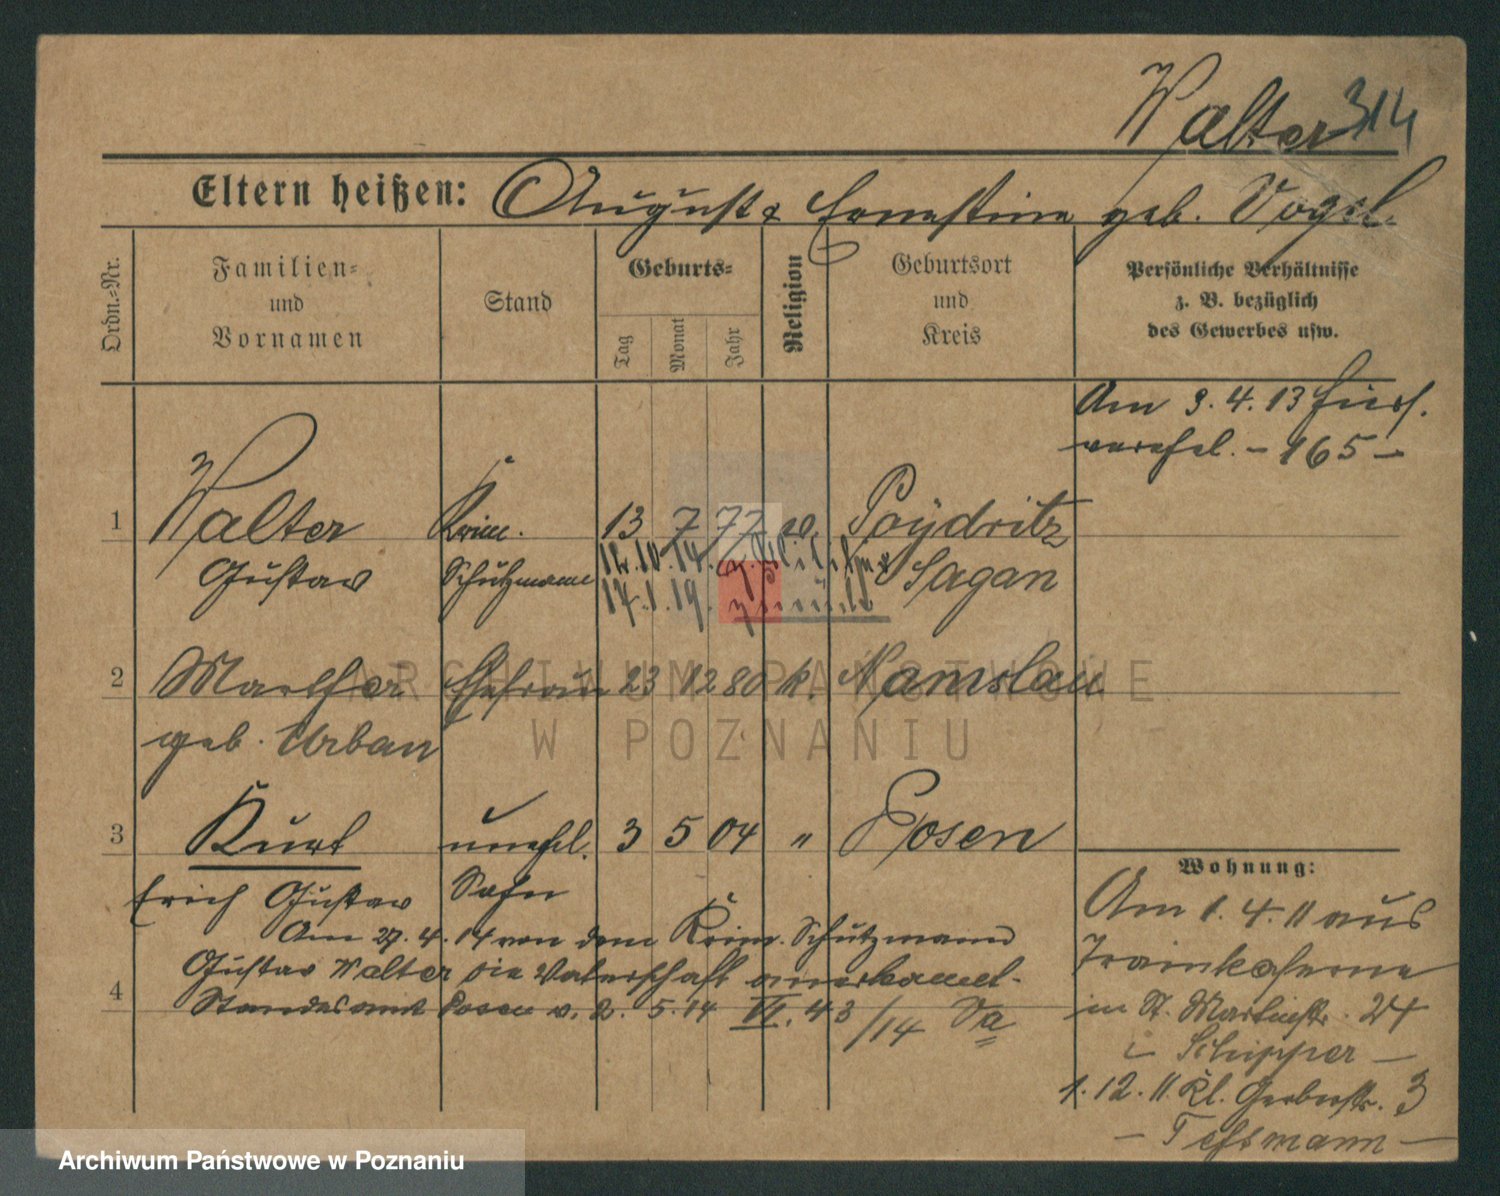 Walter 314
Eltern heißen: August & Ernestine geb. Vogel.
Ordn.-Nr.
Familien- und Vornamen
Stand
Geburts-
Tag
Monat
Jahr
Religion
Geburtsort und Kreis
Persönliche Verhältnisse
z. B. bezüglich
des Gewerbes usw.
Am 3.4.13 hier
verehel. - 165 -
1 Walter Krim. 13 7 77 ev. Poydritz
Gustav Schutzmann Sagan
12.10.14. z. Militär
17.1.19. zurück
2 Marthar Ehefrau 23 12 80 k. Namslau
geb. Urban
3 Kurt unehel. 3 5 04 " Posen
Erich Gustav Sohn
Am 27.4.14 von dem Krim. Schutzmann
Gustav Walter die Vaterschaft anerkannt.
4 Standesamt Posen v. 2.5.14 VI. 43/14 Va
Wohnung:
Am 1.4.11 aus
Trainkaserne
in St. Martinstr. 24
i- Schipper -
1.12.11 Kl. Gerberstr. 3
- Teßmann -
ARCHIWUM PAŃSTWOWE
W POZNANIU
Archiwum Państwowe w Poznaniu